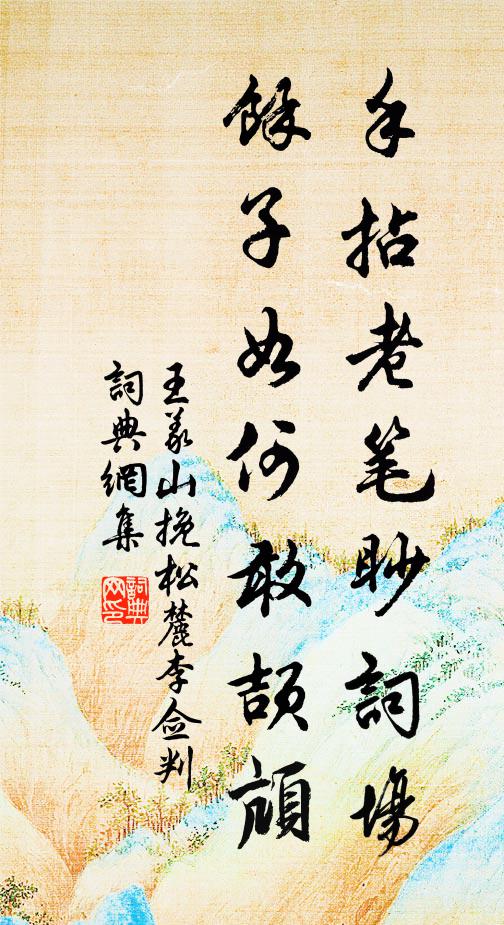 手拈老笔眇詞場
餘子如何敢頡頏
王義山挽松麓李僉判
詞典網集
詞典网印